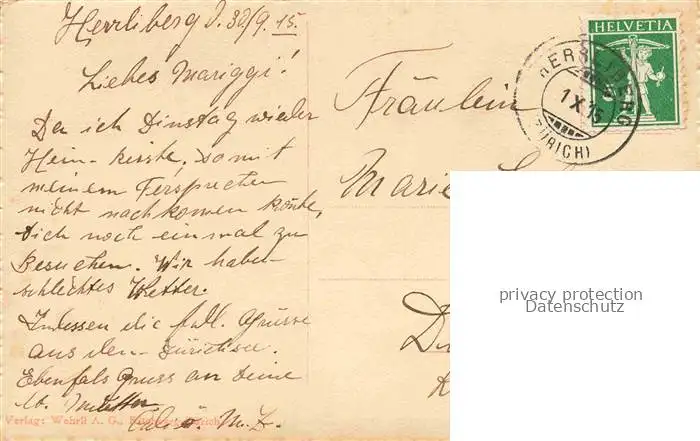 Herrliberg d. 30/9. 15.
Liebes Mariggi!
Da ich Dinstag wieder
Heim-kisste, somit
meinem Ferspruchen
nicht nachkomen könte,
dich noch einmal zu
Besuchen. Wir haben
schlechtes Wetter.
Indessen die fdl. Grüsse
aus den Zürichsee.
Ebenfals Gruss an deine
lb. Mutter
M. Z.
Verlag: Wehrli A. G., Kilchberg, Zürich
Fräulein
Marie
HELVETIA
HERRLIBERG
1 X 15
(ZÜRICH)
privacy protection
Datenschutz